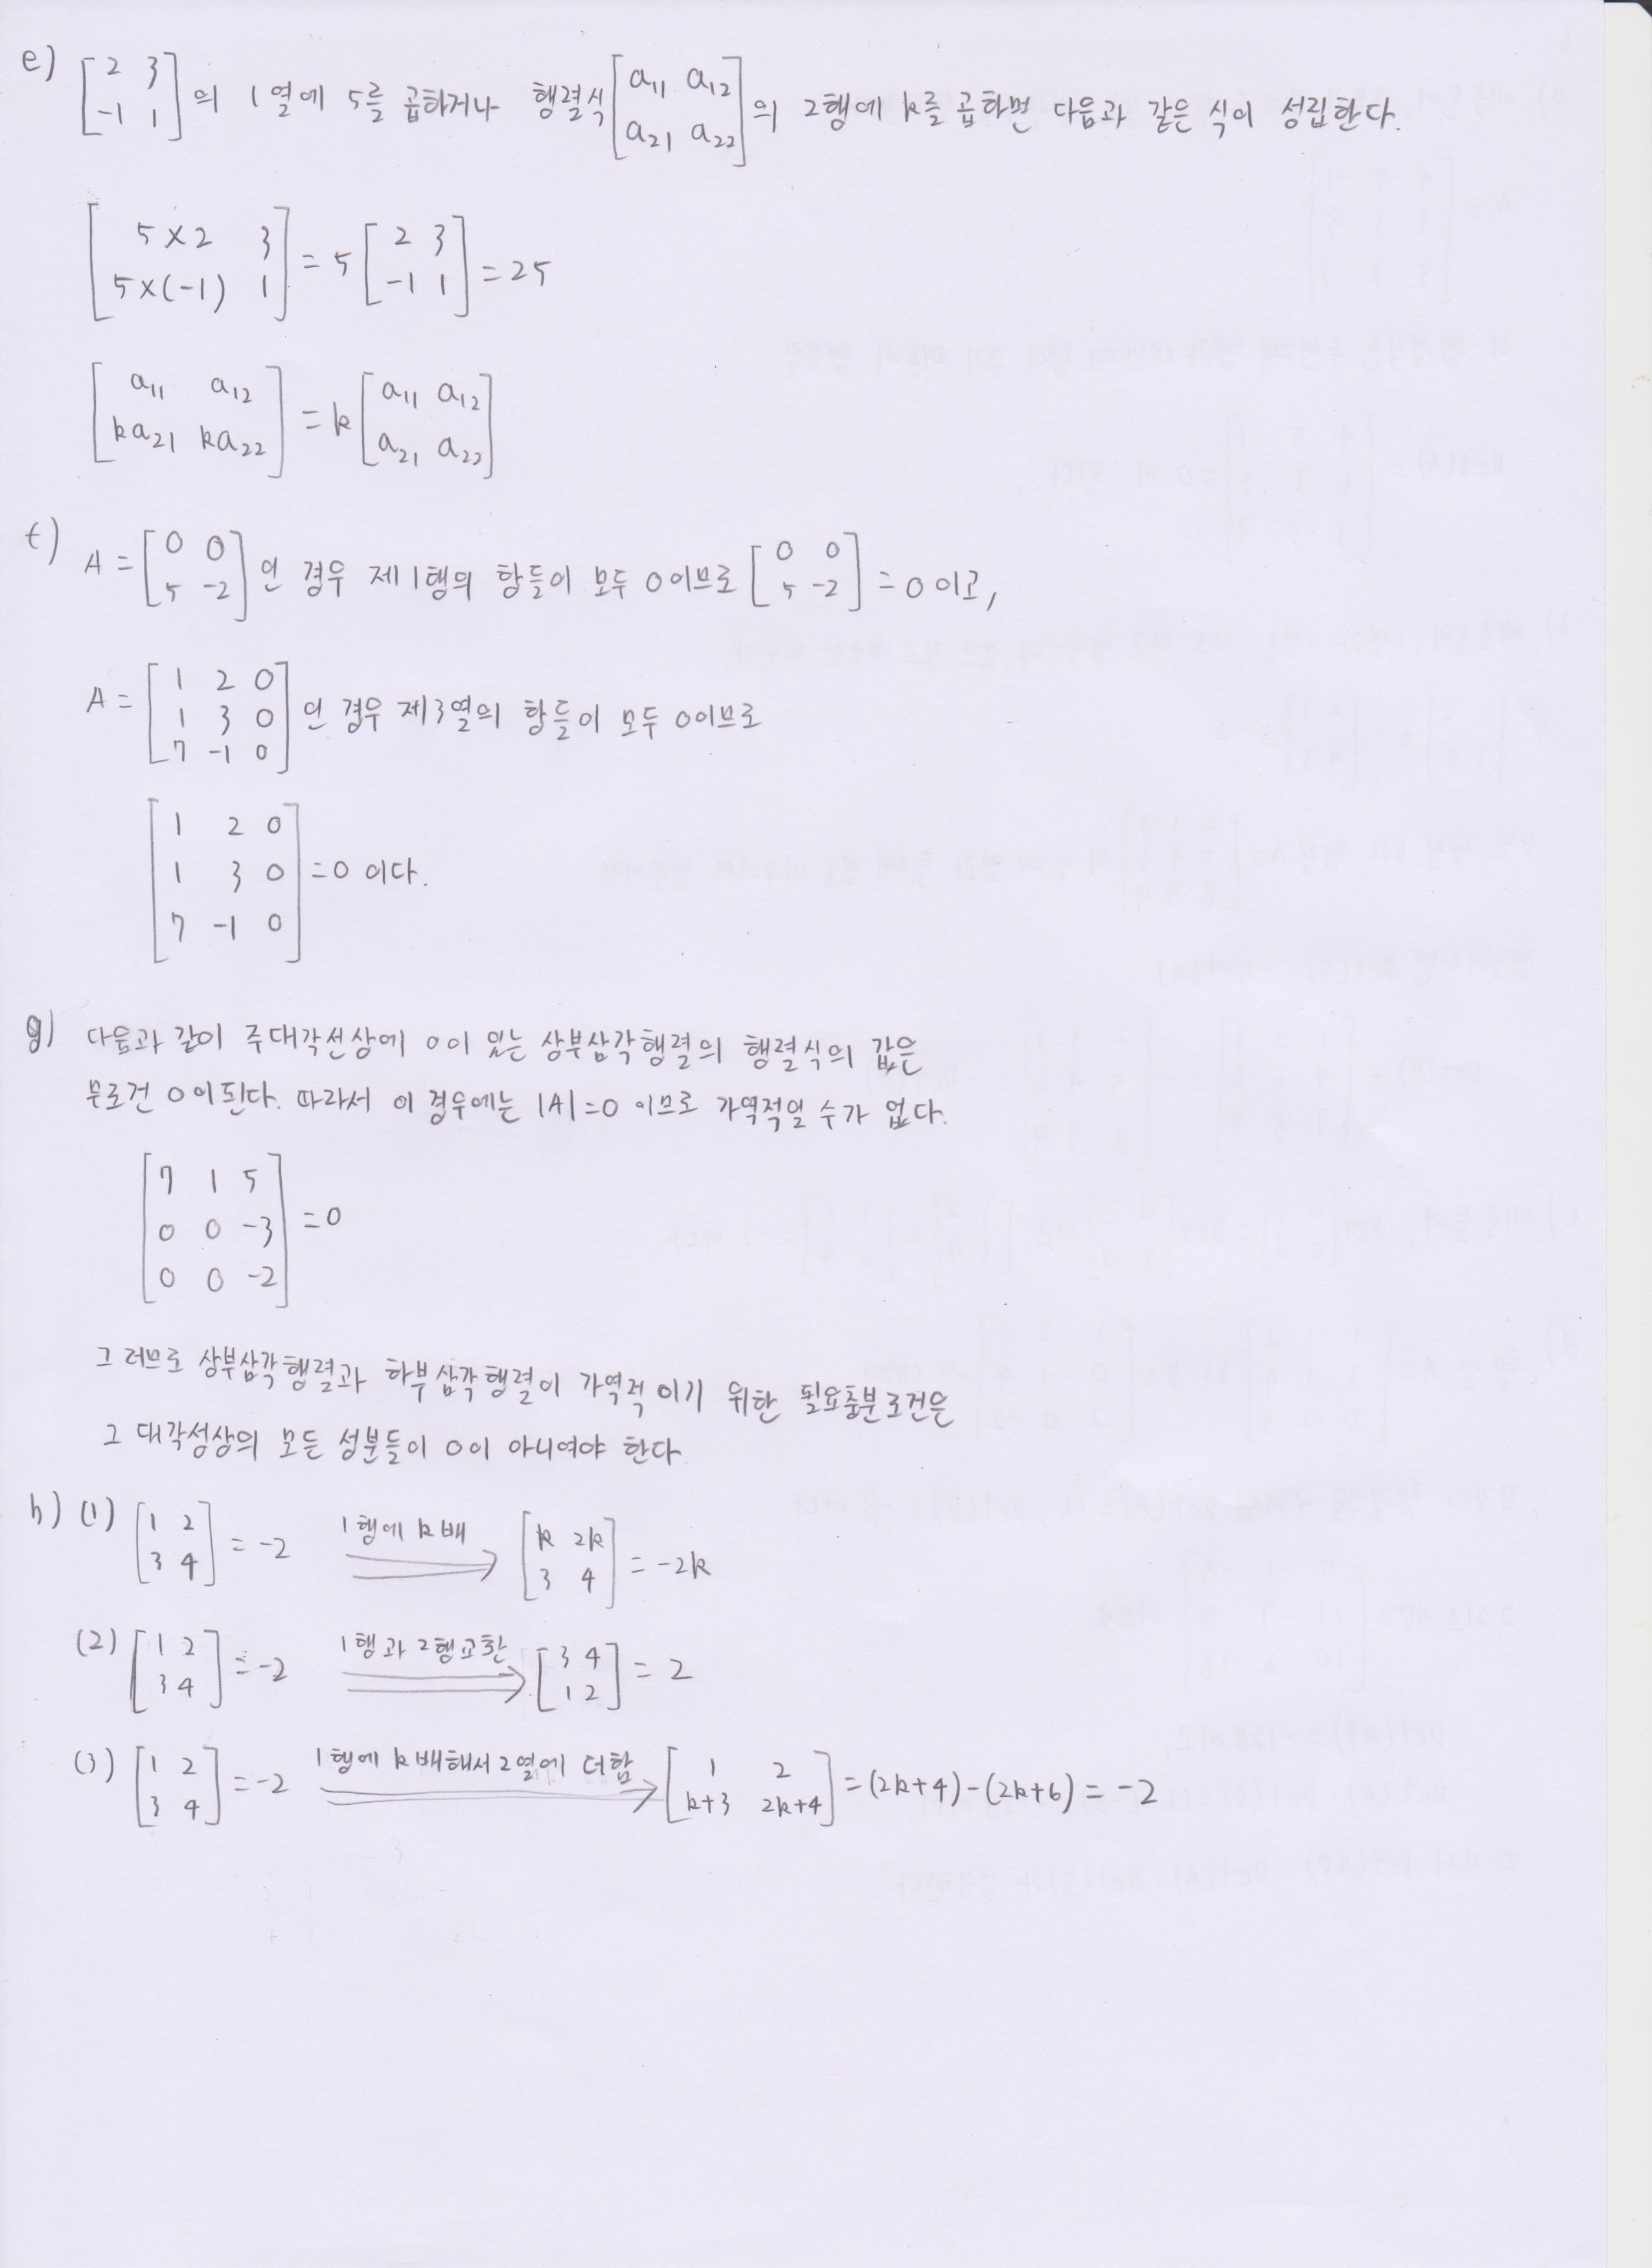 e) [2 3; -1 1]의 1열에 5를 곱하거나 행렬식[a₁₁ a₁₂; a₂₁ a₂₂]의 2행에 k를 곱하면 다음과 같은 식이 성립한다.
[5×2 3; 5×(-1) 1] = 5[2 3; -1 1] = 25
[a₁₁ a₁₂; ka₂₁ ka₂₂] = k[a₁₁ a₁₂; a₂₁ a₂₂]
f) A = [0 0; 5 -2]인 경우 제1행의 항들이 모두 0이므로 [0 0; 5 -2] = 0이고,
A = [1 2 0; 1 3 0; 7 -1 0]인 경우 제3열의 항들이 모두 0이므로
[1 2 0; 1 3 0; 7 -1 0] = 0 이다.
g) 다음과 같이 주대각선상에 0이 있는 상부삼각행렬의 행렬식의 값은
무로건 0이된다. 따라서 이 경우에는 |A|=0 이므로 가역적일 수가 없다.
[7 1 5; 0 0 -3; 0 0 -2] = 0
그러므로 상부삼각행렬과 하부삼각행렬이 가역적이기 위한 필요충분로건은
그 대각성상의 모든 성분들이 0이 아니여야 한다
h) (1) [1 2; 3 4] = -2 1행에 k배 [k 2k; 3 4] = -2k
(2) [1 2; 3 4] = -2 1행과 2행교환 [3 4; 1 2] = 2
(3) [1 2; 3 4] = -2 1행에 k배해서 2열에 더함 [1 2; k+3 2k+4] = (2k+4)-(2k+6) = -2